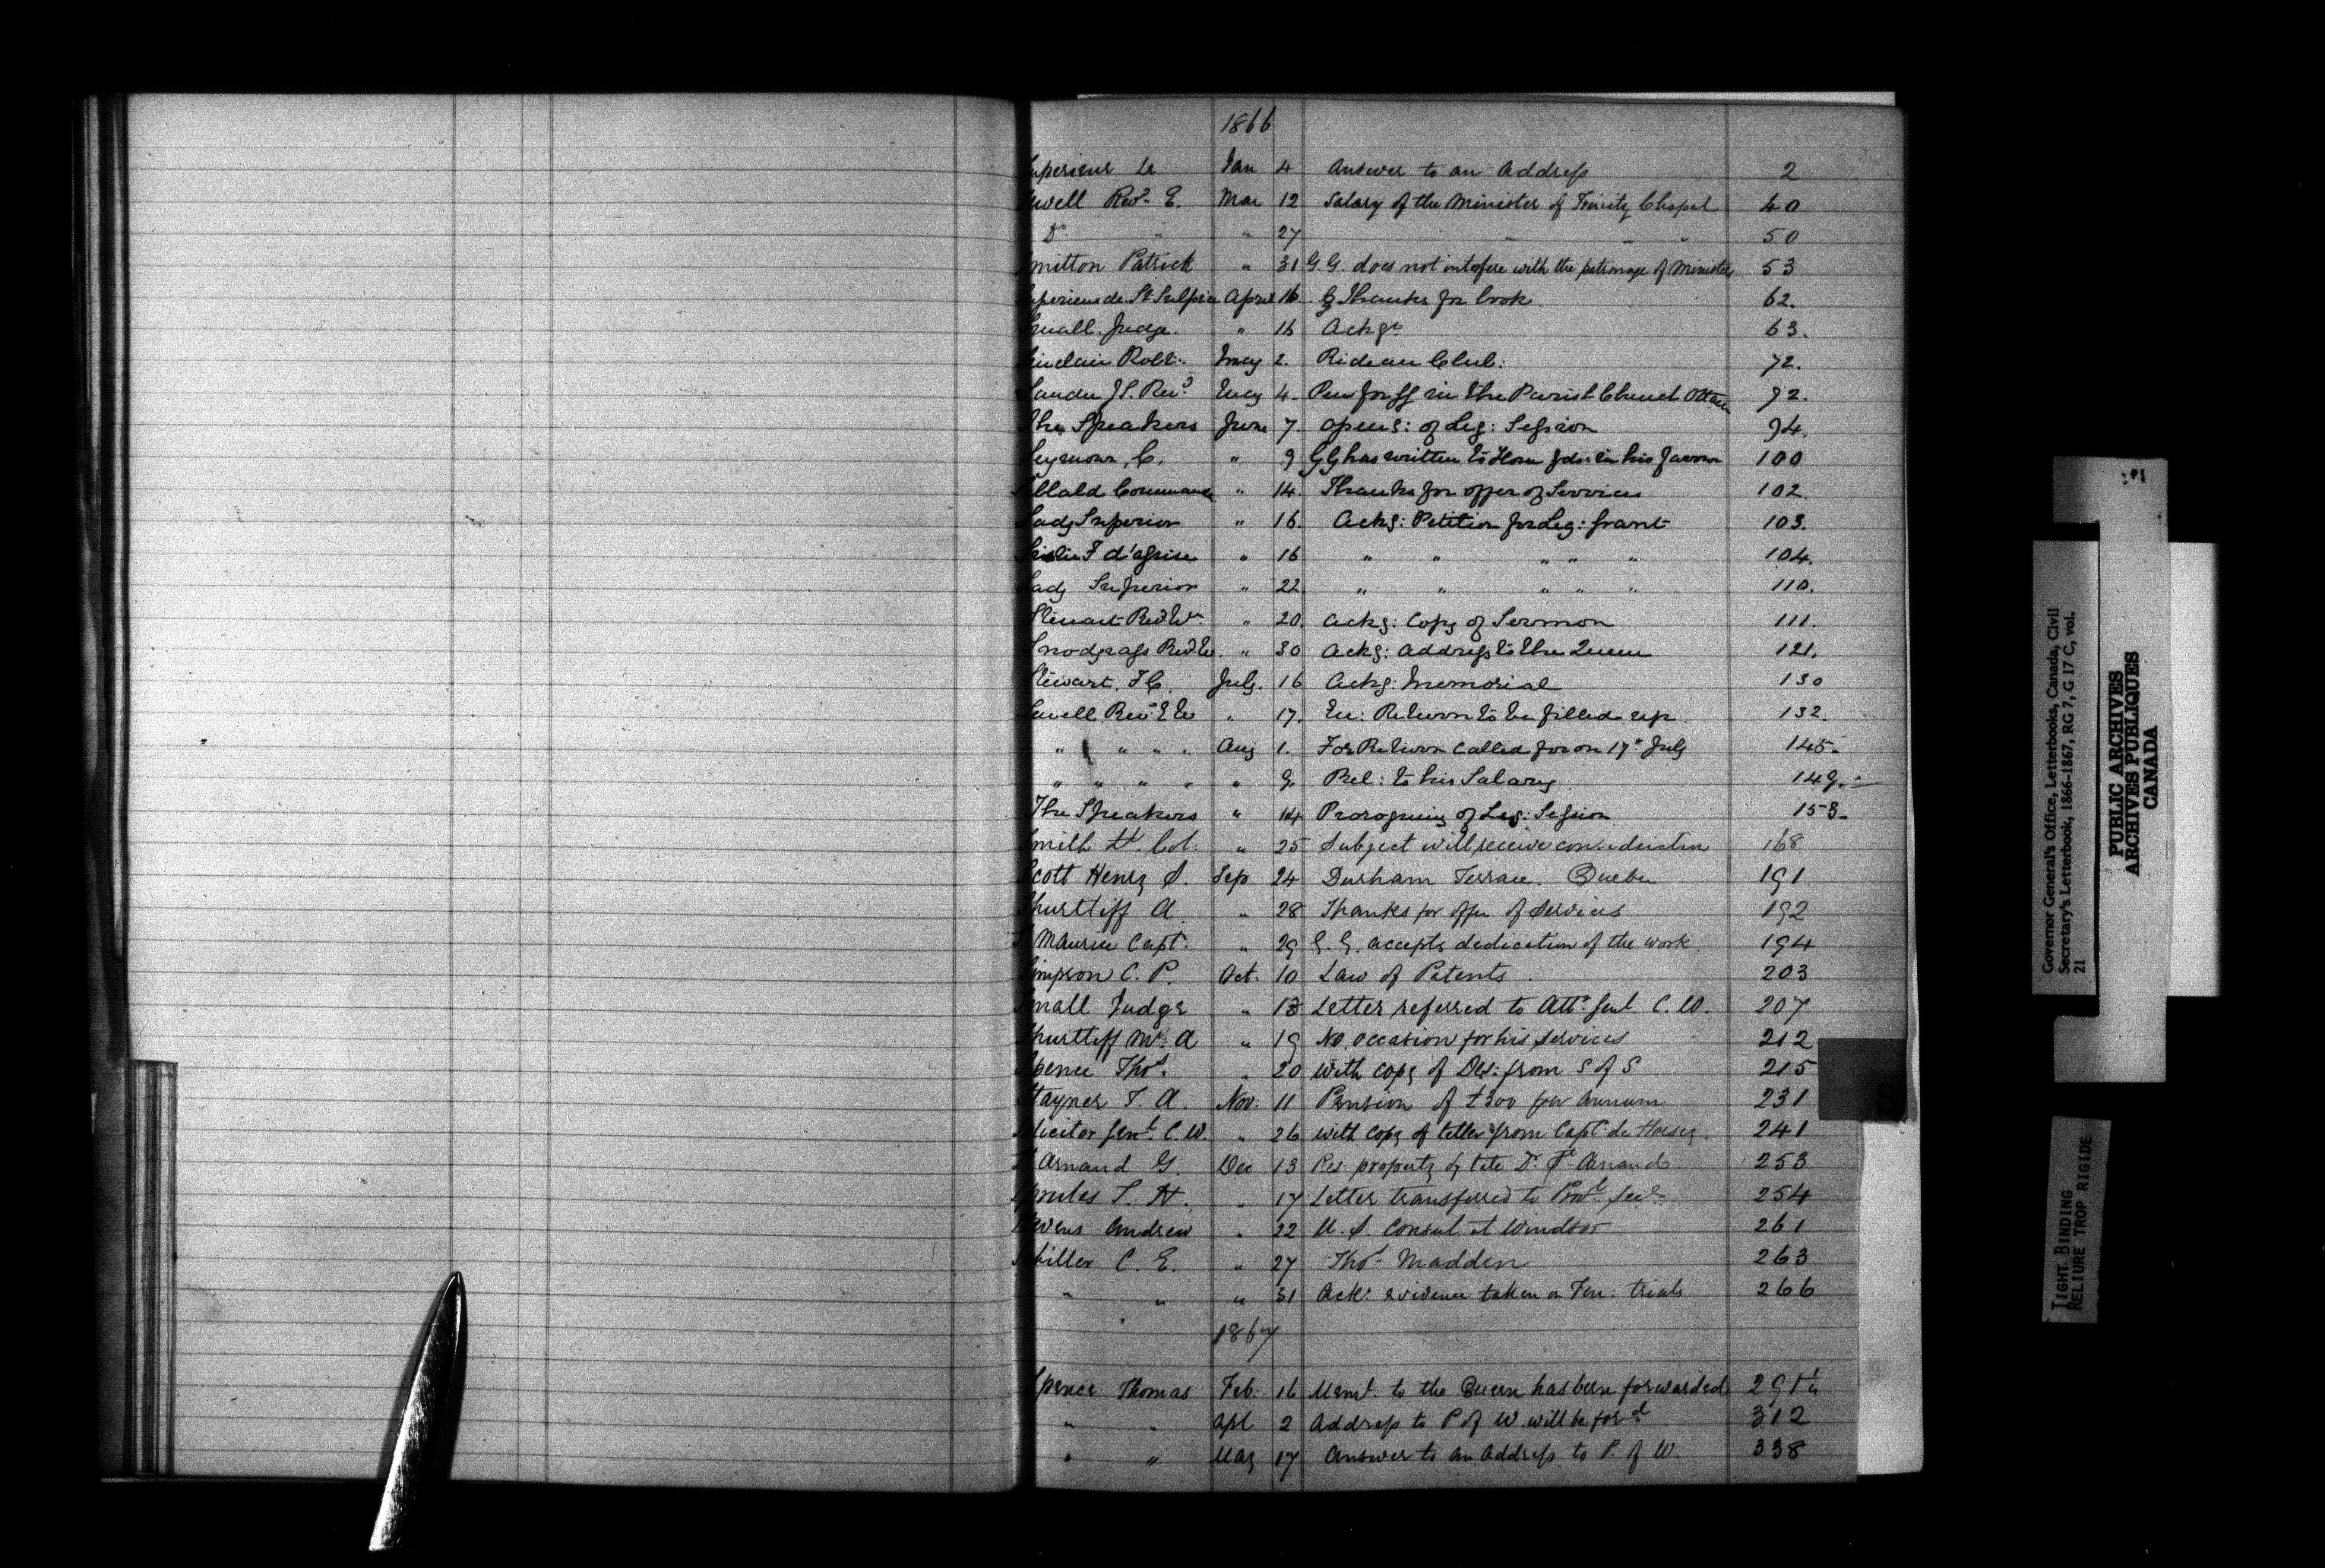 1866
Superieur Le Jan 4 Answer to an Address 2
Sewell Revd. E. Mar 12 Salary of the Minister of Trinity Chapel 40
Do. " " 27 " " " 50
Smitton Patrick " 31 G.G. does not interfere with the patronage of Ministers 53
Superieur de St. Sulpice April 16. Thanks for book. 62.
Small. Judge. " 16 Ackgs 63.
Sinclair Robt. May 2. Rideau Club: 72.
J.S. Revd May 4. Pew for GG in the Parish Church Ottawa 92.
The Speakers June 7. Openg: of Leg: Session 94.
Seymour, C. " 9 GG has written to Home in his favour 100
Commander " 14. Thanks for offer of Services 102.
Lady Superior " 16. Ackg: Petition for Leg: Grant 103.
" 16 " " " " " 104.
Lady Superior " 22 " " " " " 110.
Stewart Revd. W. " 20. Ackg: Copy of Sermon 111.
Snodgrass Revd. W. " 30 Ackg: Address to the Queen 121.
Stewart. F.C. July. 16 Ackg: Memorial 130
Sewell Revd E W " 17. En: Return to be filled up. 132.
" " " " Aug 1. For Return called for on 17th July 145.
" " " " " 9. Rel: to his Salary. 149.
The Speakers " 14 Proroguing of Leg: Session 153.
Smith Lt. Col. " 25 Subject will receive consideration 168
Scott Henry S. Sep 24 Durham Terrace. Quebec 191
Shurtliff A. " 28 Thanks for offer of Services 192
St Maurice Capt. " 29 G. G. accepts dedication of the work. 194
Simpson C. P. Oct. 10 Law of Patents. 203
Small Judge " 13 Letter referred to Atty. Genl. C. W. 207
Shurtliff Mr. A " 19 No occasion for his services 212
Spence Thos. " 20 with copy of Des: from S of S 215
Stayner T. A. Nov. 11 Pension of £300 per Annum 231
Solicitor Genl. C. W. " 26 with copy of letter from Capt. de Horsey. 241
St Arnaud G. Dec 13 Res. property of late Dr. St. Arnaud 253
Sproules S. H. " 17 Letter transferred to Provl. Secy. 254
Stevens Andrew " 22 U. S. Consul at Windsor 261
Schiller C. E. " 27 Thos. Madden 263
" " " 31 Ack: evidence taken on Fen: trials 266
1867
Spence Thomas Feb. 16 Meml. to the Queen has been forwarded 291½
" " Apl 2 Address to P of W. will be ford. 312
" " May 17 Answer to an Address to P. of W. 338
S
Governor General's Office, Letterbooks, Canada, Civil
Secretary's Letterbook, 1866-1867, RG 7, G 17 C, vol.
21
PUBLIC ARCHIVES
ARCHIVES PUBLIQUES
CANADA
TIGHT BINDING
RELIURE TROP RIGIDE